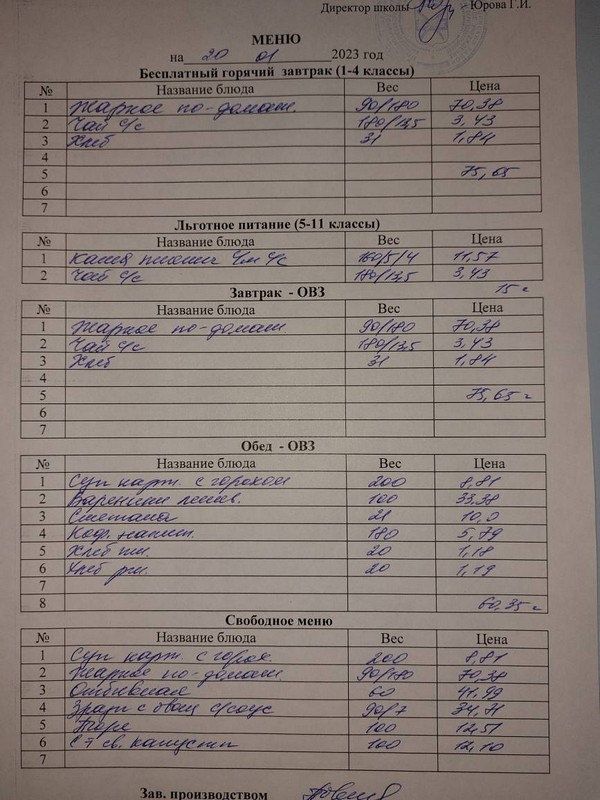 Директор школы Юрова Г.И.
МЕНЮ
на 20 01 2023 год
Бесплатный горячий завтрак (1-4 классы)
№ Название блюда Вес Цена
1 Жаркое по-домаш. 90/180 70,38
2 Чай с/с 180/12,5 3,43
3 Хлеб 31 1,84
4
5 75,65
6
7
Льготное питание (5-11 классы)
Название блюда Вес Цена
1 Каша с/м с/с 160/5/4 11,57
2 Чай с/с 180/12,5 3,43
15
Завтрак - ОВЗ
№ Название блюда Вес Цена
1 Жаркое по-домаш 90/180 70,38
2 Чай с/с 180/12,5 3,43
3 Хлеб 31 1,84
4
5 75,65
6
7
Обед - ОВЗ
№ Название блюда Вес Цена
1 Суп карт. с горохом 200 8,81
2 Вареники ленив. 100 33,38
3 Сметана 21 10,0
4 Коф. напит. 180 5,79
5 Хлеб пш. 20 1,18
6 Хлеб рж. 20 1,19
7
8 60,35
Свободное меню
№ Название блюда Вес Цена
1 Суп карт. с горох. 200 8,81
2 Жаркое по-домаш. 90/180 70,38
3 Отбивная 60 41,99
4 Зразы с овощ с/соус 90/7 34,71
5 Пюре 100 12,51
6 С-т св. капусты 100 12,10
7
Зав. производством